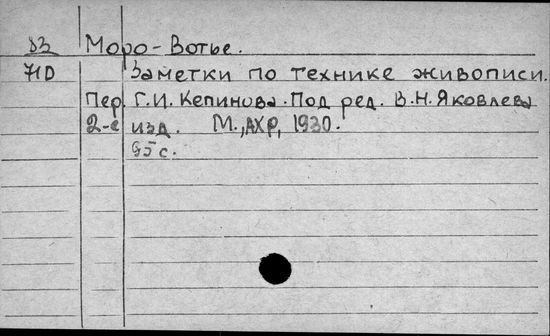 83 Моро-Вотье.
71D Заметки по технике живописи.
Пер. Г.И. Кепинова. Под ред. В.Н. Яковлева
2-е изд. М., АХР, 1930.
95 с.